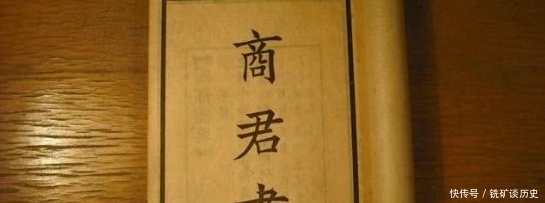 商君書
快传号／铣矿谈历史